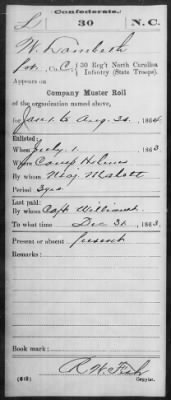 Confederate.
L 30 N.C.
W. Lambeth
Pvt., Co. C, 30 Reg't North Carolina
Infantry (State Troops).
Appears on
Company Muster Roll
of the organization named above,
for Jan 1 to Aug. 31, 1864.
Enlisted:
When July 1, 1863
Where Camp Holmes
By whom Maj. Mallett
Period 3 yrs
Last paid:
By whom Capt Williams
To what time Dec 31, 1863.
Present or absent present
Remarks:
Book mark:
R W Fish
(642) Copyist.